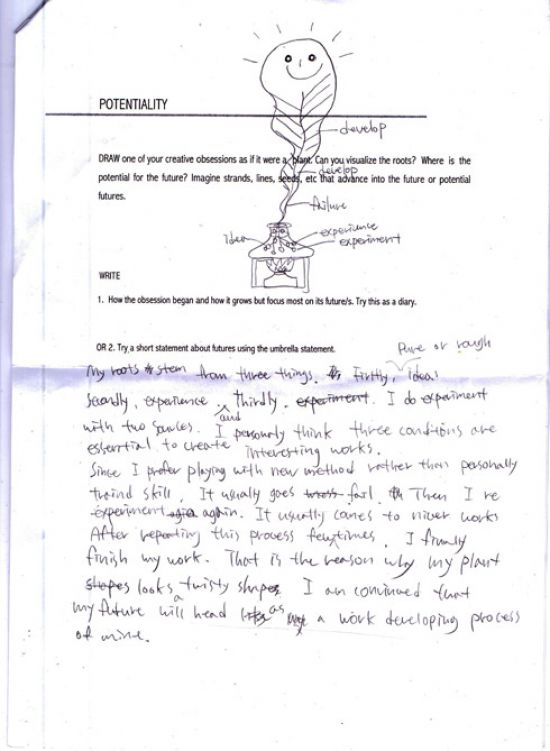 POTENTIALITY
develop
DRAW one of your creative obsessions as if it were a plant. Can you visualize the roots? Where is the
develop
potential for the future? Imagine strands, lines, seeds, etc that advance into the future or potential
futures.
failure
idea
experience
experiment
WRITE
1. How the obsession began and how it grows but focus most on its future/s. Try this as a diary.
OR 2. Try a short statement about futures using the umbrella statement.
Pure or rough
My roots stem from three things. Firstly, ideas
Secondly, experience. and Thirdly. experiment. I do experiment
with two sources. I personaly think three conditions are
essential to create interesting works.
Since I prefer playing with new method rather than personally
traind skill, It usually goes fail. Then I re
experiment again. It usually comes to nicer works
After repeating this process few times, I finally
finish my work. That is the reason why my plant
looks a twisty shapes I am convinced that
my future will head as a work developing process
of mine.